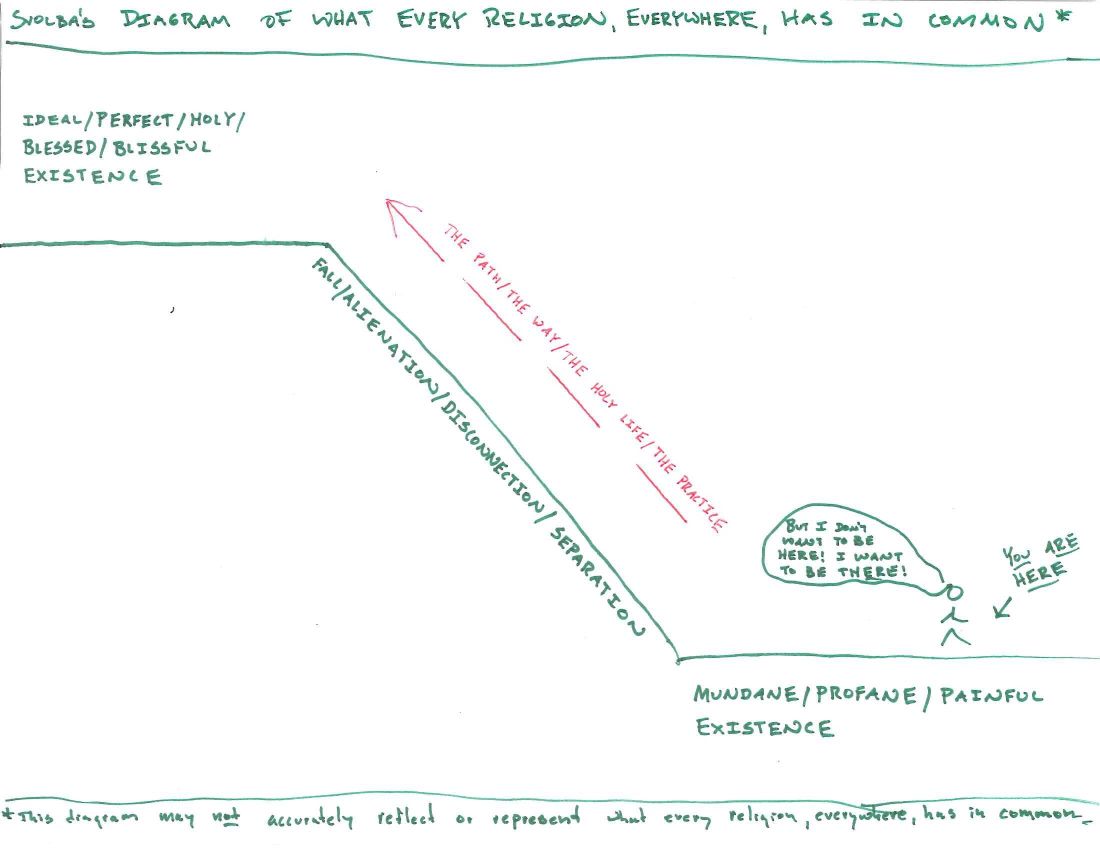 SVOLBA'S DIAGRAM OF WHAT EVERY RELIGION, EVERYWHERE, HAS IN COMMON *
IDEAL/PERFECT/HOLY/
BLESSED/BLISSFUL
EXISTENCE
THE PATH/THE WAY/THE HOLY LIFE/THE PRACTICE
FALL/ALIENATION/DISCONNECTION/SEPARATION
BUT I DON'T
WANT TO BE
HERE! I WANT
TO BE THERE!
YOU ARE
HERE
MUNDANE/PROFANE/PAINFUL
EXISTENCE
*This diagram may not accurately reflect or represent what every religion, everywhere, has in common.